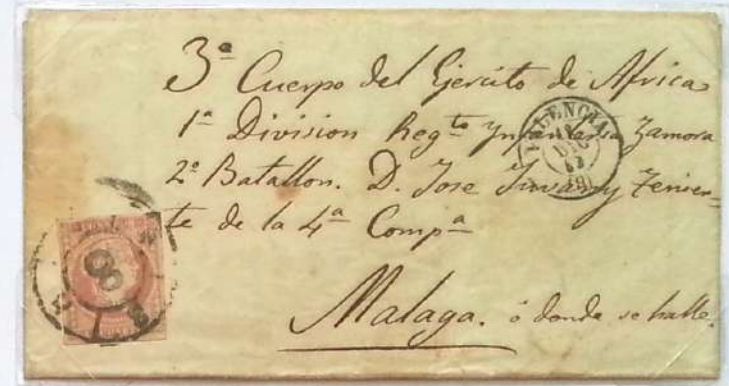 3ª Cuerpo del Ejercito de Africa
1ª Division Regto Ynfantería Zamora
2º Batallon. D. Jose Tenien-
te de la 4ª Compª
Malaga. ó donde se halle.
VALENCIA
DIC